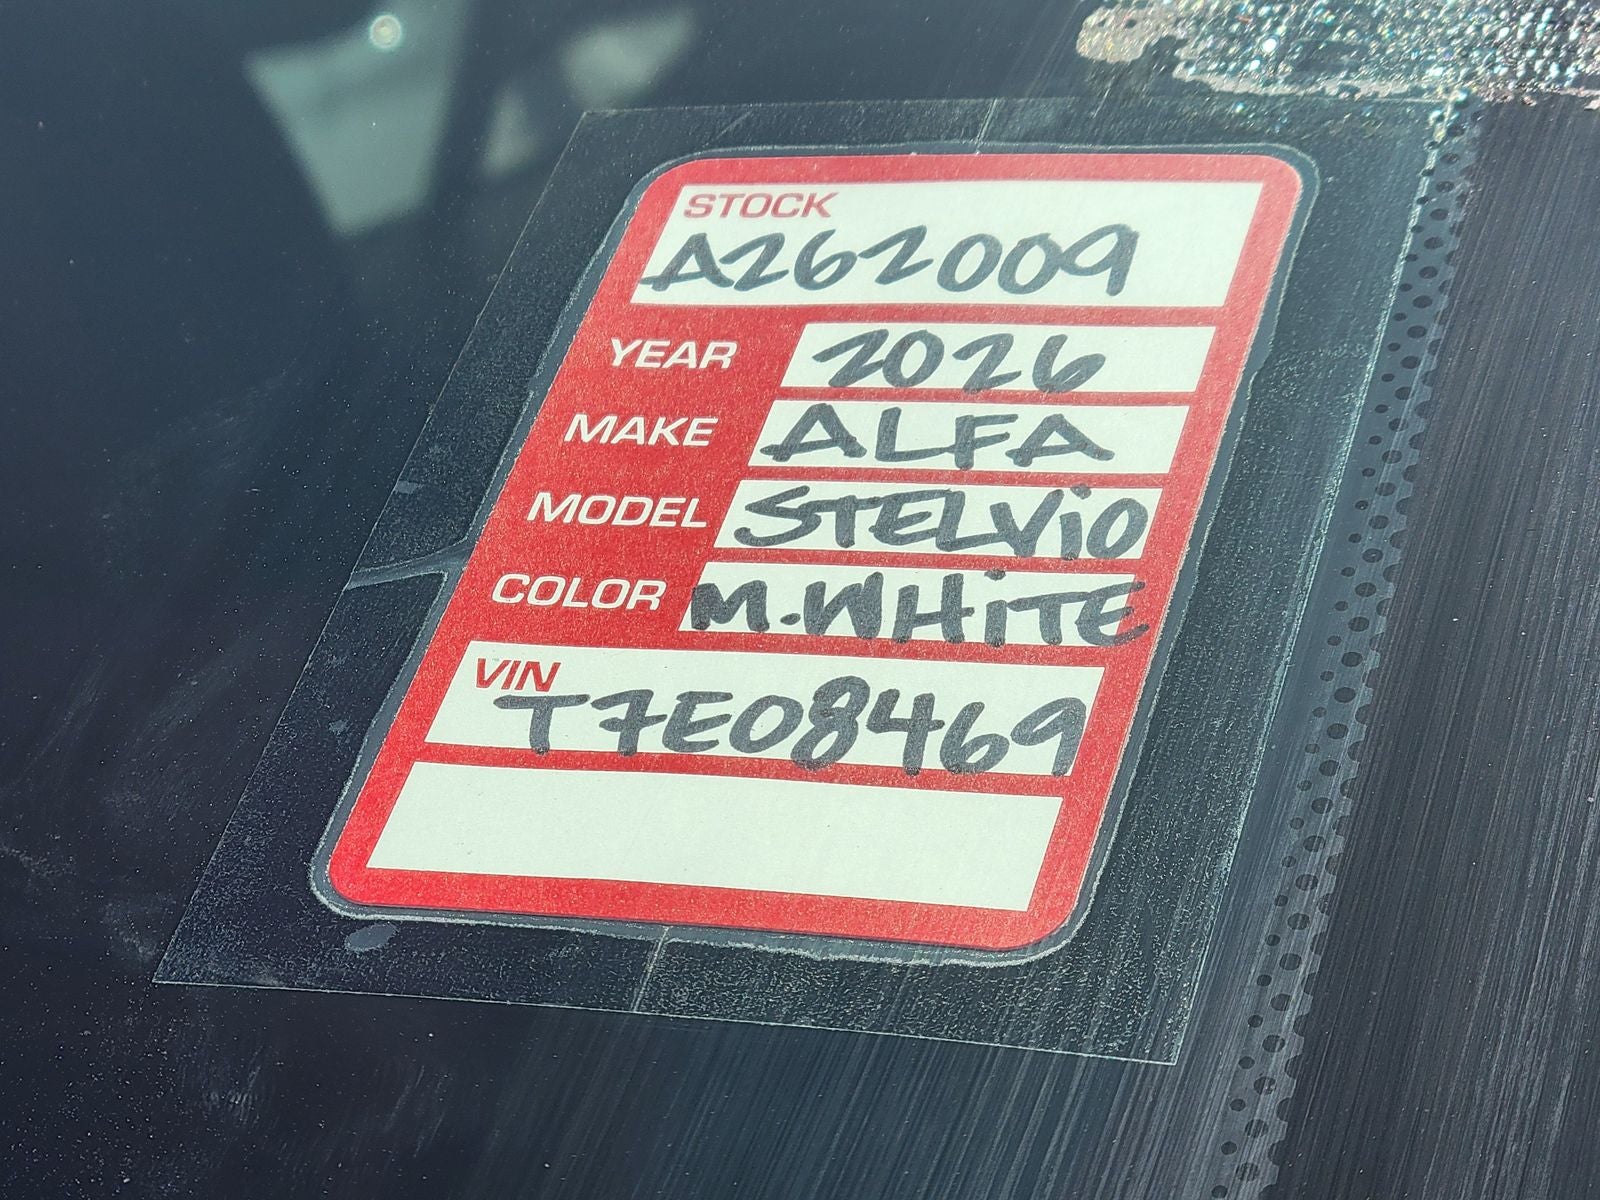 STOCK
A262009
YEAR 2026
MAKE ALFA
MODEL STELViO
COLOR M.WHiTE
VIN
T7E08469